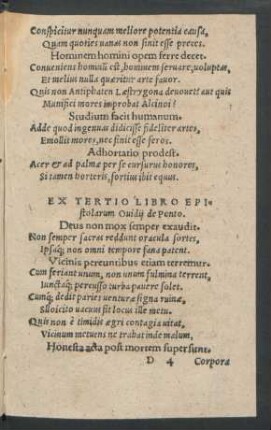 Conspicitur nunquam meliore potentia causa,
Quam quoties uanas non sinit esse preces.
Hominem homini opem ferre decet.
Conueniens homini est, hominem seruare, uoluptas,
Et melius nulla quæritur arte fauor.
Quis non Antiphaten Læstrygona deuouet? aut quis
Munifici mores improbat Alcinoi?
Studium facit humanum.
Adde quod ingenuas didicisse fideliter artes,
Emollit mores, nec sinit esse feros.
Adhortatio prodest.
Acer & ad palmæ per se cursurus honores,
Si tamen horteris, fortius ibit equus.
EX TERTIO LIBRO EPI
stolarum Ouidij de Ponto.
Deus non mox semper exaudit.
Non semper sacras reddunt oracula sortes,
Ipsaq́; non omni tempore fana patent.
Vicinis pereuntibus etiam terremur.
Cum feriant unum, non unum fulmina terrent,
Iunctaq́; percusso turba pauere solet.
Cumq́; dedit paries uenturæ signa ruinæ,
Sollicito uacuus fit locus ille metu.
Quis non è timidis ægri contagia uitat,
Vicinum metuens ne trahat inde malum,
Honesta acta post mortem supersunt.
D 4 Corpora